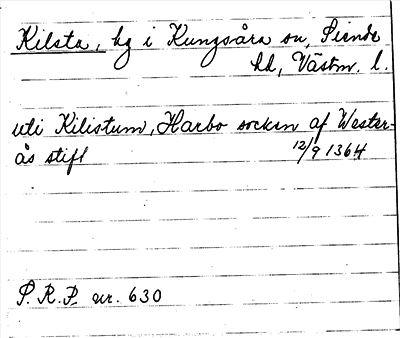 Kilsta, hg i Kungsåra sn, Siende
hd, Västm. l.
uti Kilistum, Harbo socken af Wester-
ås stift 12/9 1364
S.R.P. nr. 630